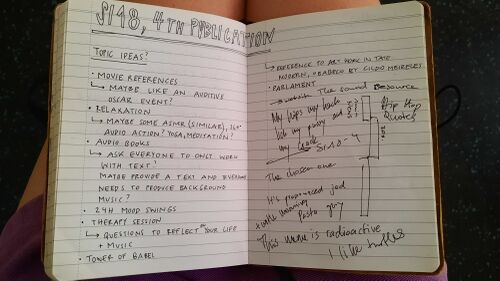 S148, 4TH PUBLICATION
TOPIC IDEAS?
• MOVIE REFERENCES
↳ MAYBE LIKE AN AUDITIVE
OSCAR EVENT?
• RELAXATION
↳ MAYBE SOME ASMR (SIMILAR), 360°
AUDIO ACTION? YOGA, MEDITATION?
• AUDIO BOOKS
↳ ASK EVERYONE TO ONLY WORK
WITH TEXT?
MAYBE PROVIDE A TEXT AND EVERYONE
NEEDS TO PRODUCE BACKGROUND
MUSIC?
• 24H MOOD SWINGS
• THERAPY SESSION
↳ QUESTIONS TO REFLECT ON YOUR LIFE
+ MUSIC
• TONER OF BABEL
↳ REFERENCE TO ART WORK IN TATE
MODERN, "BABEL" BY CILDO MEIRELES
• PARLAMENT
↳ website The Sound Resource
My hips my back
my
Hip Hop
Quotes
The chosen one
It's pronounced jod
Pasta guy
This meme is radioactive
I like turtles